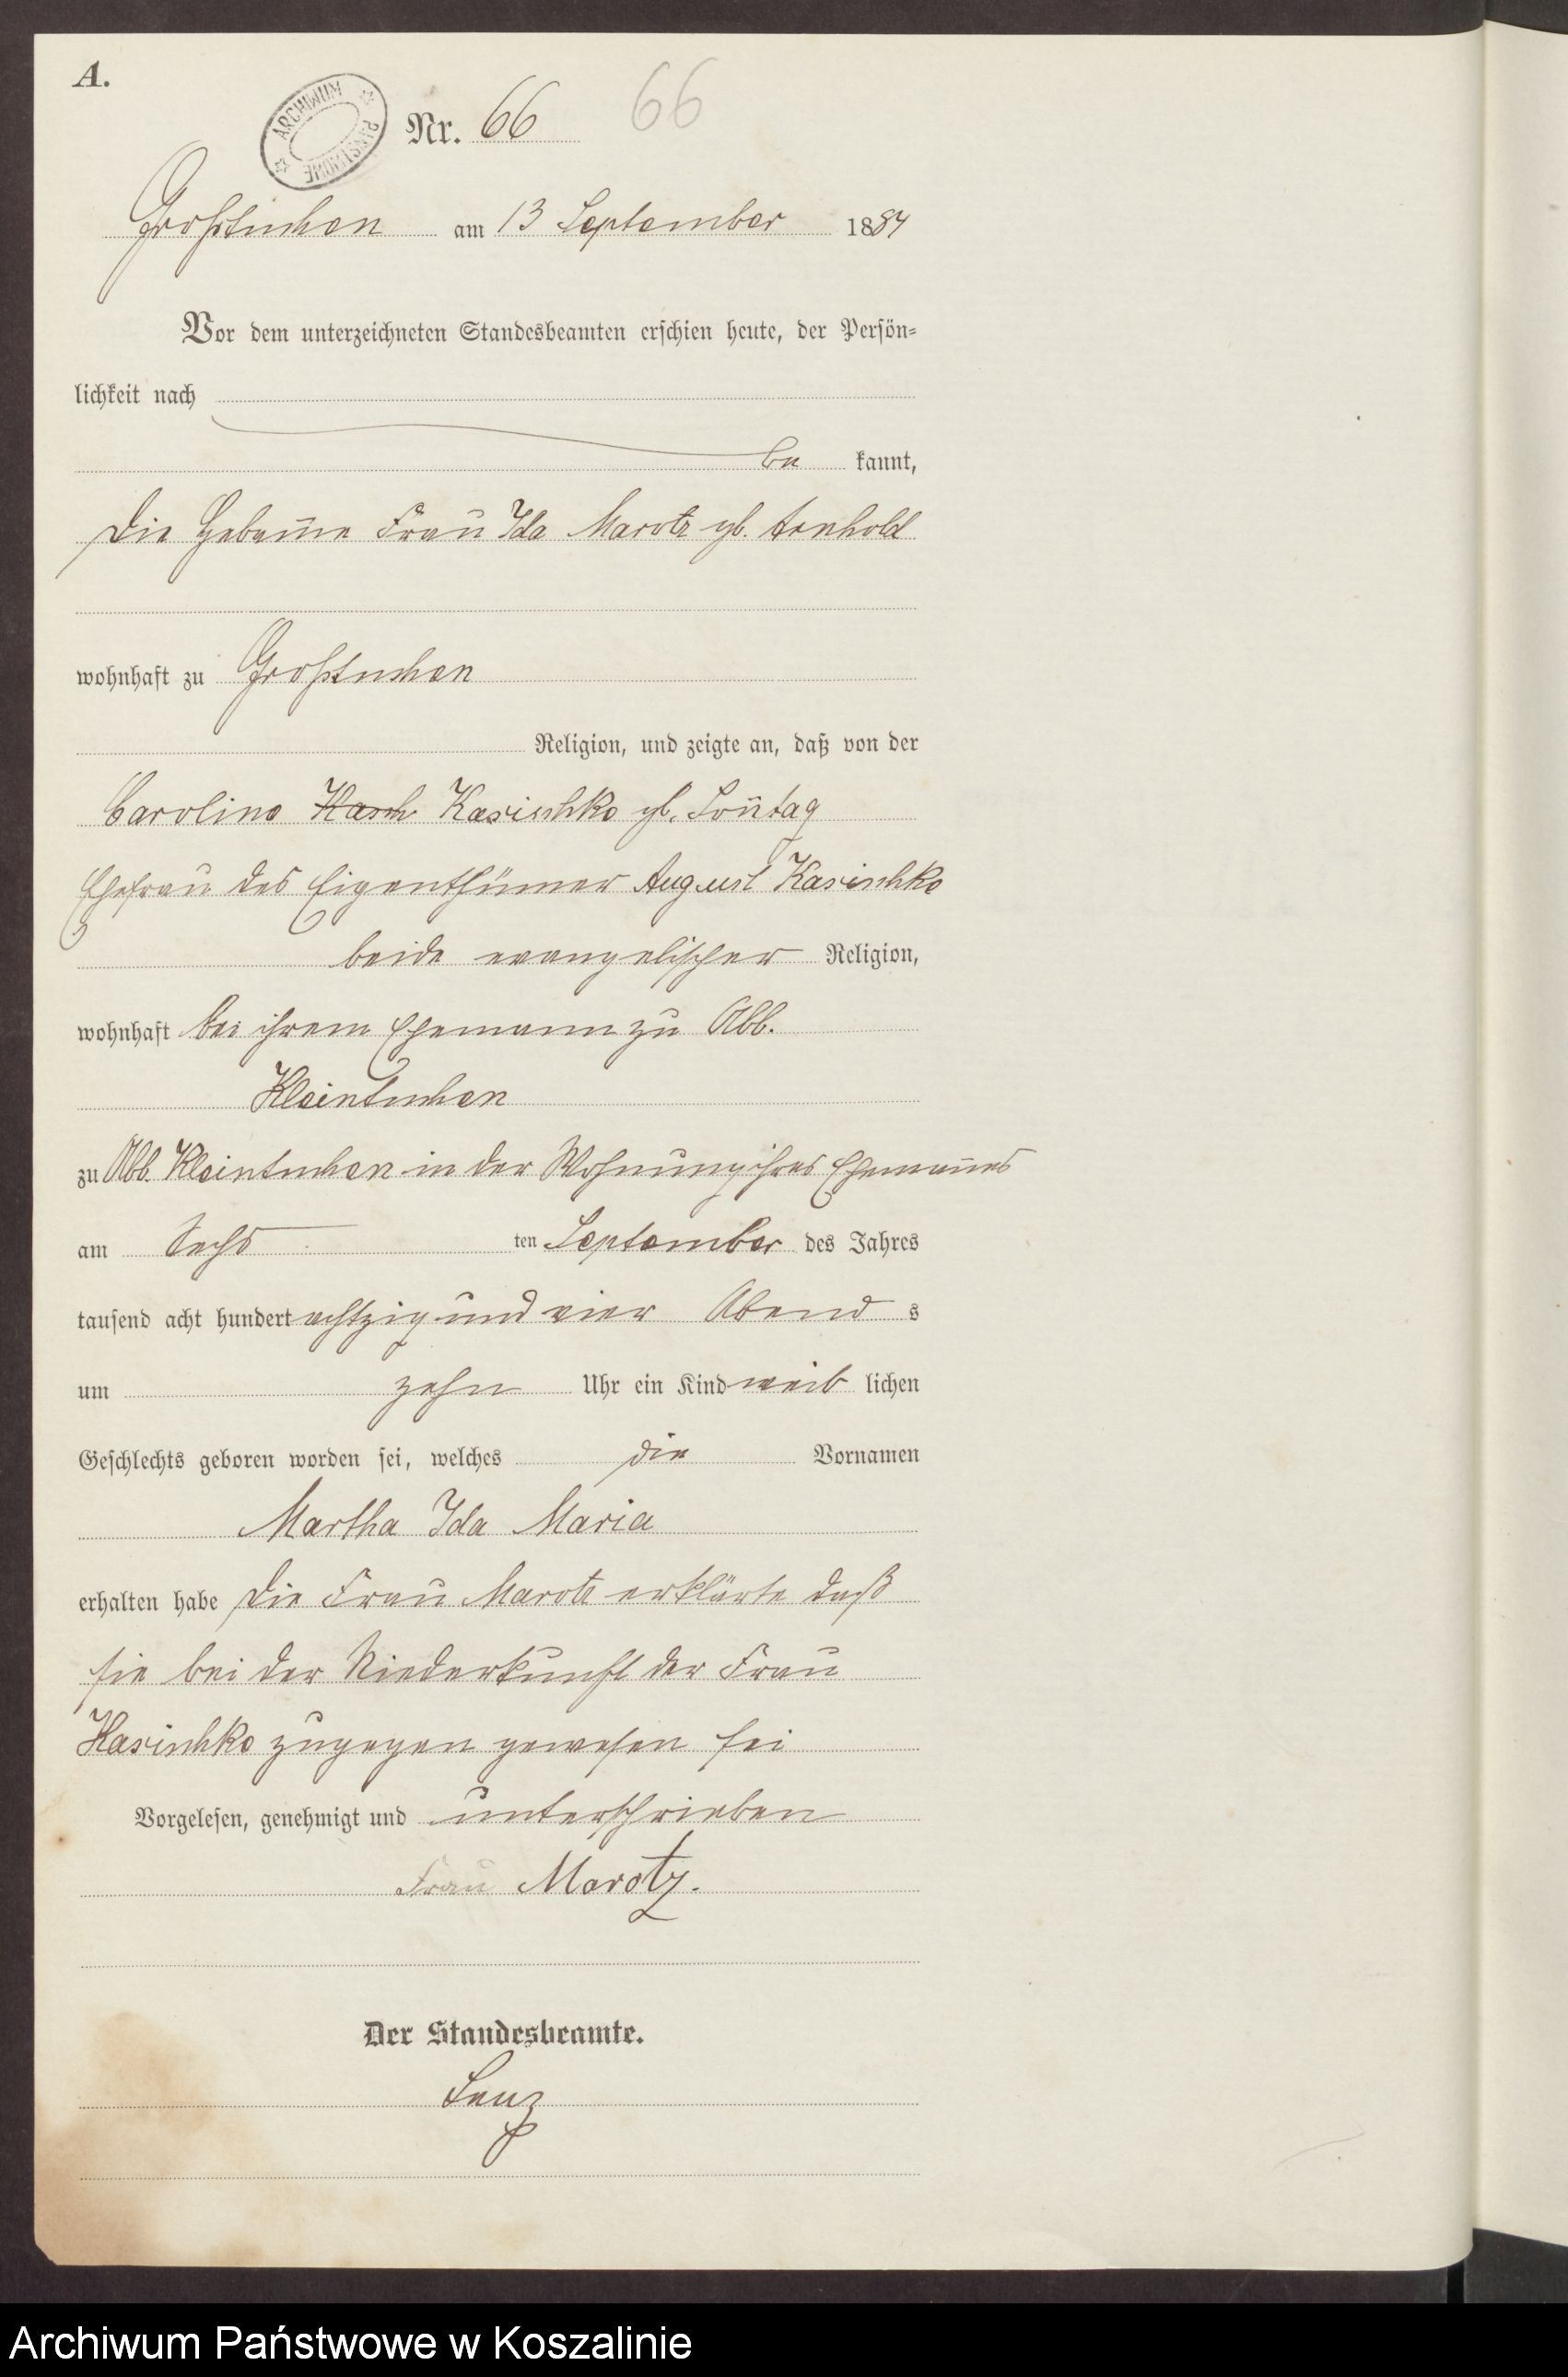 A.
ARCHIWUM PAŃSTWOWE
Nr. 66 66
Großtuchen am 13 September 1884
Vor dem unterzeichneten Standesbeamten erschien heute, der Persön=
lichkeit nach
be kannt,
die Hebamme Frau Ida Marotz gb. Arnhold
wohnhaft zu Großtuchen
Religion, und zeigte an, daß von der
Caroline Kasch Kasischke gb. Sonntag
Ehefrau des Eigenthümer August Kasischke
beide evangelischer Religion,
wohnhaft bei ihrem Ehemann zu Abb.
Kleintuchen
zu Abb. Kleintuchen in der Wohnung ihres Ehemannes
am Sechs ten September des Jahres
tausend acht hundert achtzig und vier Abend s
um zehn Uhr ein Kind weib lichen
Geschlechts geboren worden sei, welches die Vornamen
Martha Ida Maria
erhalten habe die Frau Marotz erklärte daß
sie bei der Niederkunft der Frau
Kasischke zugegen gewesen sei
Vorgelesen, genehmigt und unterschrieben
Frau Marotz.
Der Standesbeamte.
Lenz
Archiwum Państwowe w Koszalinie